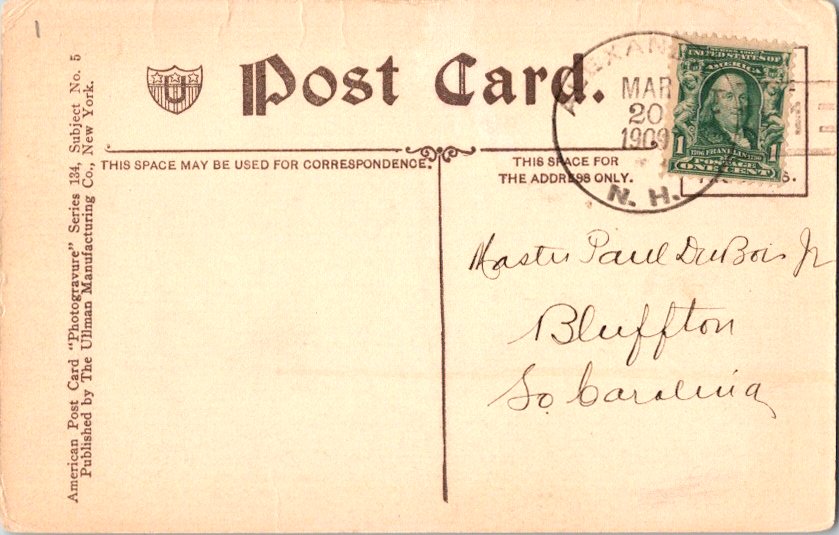 1
American Post Card "Photogravure" Series 134, Subject No. 5
Published by The Ullman Manufacturing Co., New York.
U
Post Card.
THIS SPACE MAY BE USED FOR CORRESPONDENCE.
THIS SPACE FOR
THE ADDRESS ONLY.
MAR
20
1909
N. H.
UNITED STATES OF
AMERICA
1 FRANKLIN 1
POSTAGE
ONE CENT
Master Paul DuBois Jr
Bluffton
So. Carolina